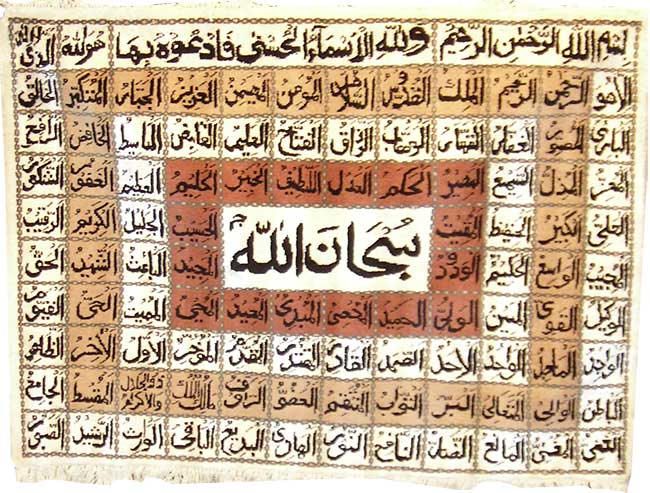 بسم الله الرحمن الرحيم ولله الأسماء الحسنى فادعوه بها هو الله الذي
الاهو الرحمن الرحيم الملك القدوس السلام المؤمن المهيمن العزيز الجبار المتكبر الخالق
البارئ المصور الغفار القهار الوهاب الرزاق الفتاح العليم القابض الباسط الخافض الرافع
المعز المذل السميع البصير الحكم العدل اللطيف الخبير الحليم العظيم الغفور الشكور
العلي الكبير الحفيظ المقيت الحسيب الجليل الكريم الرقيب
سبحان الله
المجيب الواسع الحكيم الودود المجيد الباعث الشهيد الحق
الوكيل القوي المتين الولي الحميد المحصي المبدي المعيد المحيي المميت الحي القيوم
الواجد الماجد الواحد الاحد الصمد القادر المقتدر المقدم المؤخر الأول الأخر الظاهر
الباطن الوالي المتعالي البر التواب المنتقم العفو الرؤف مالك الملك ذوالجلال والاكرام المقسط الجامع
الغني المغني المانع الضار النافع النور الهادي البديع الباقي الوارث الرشيد الصبور